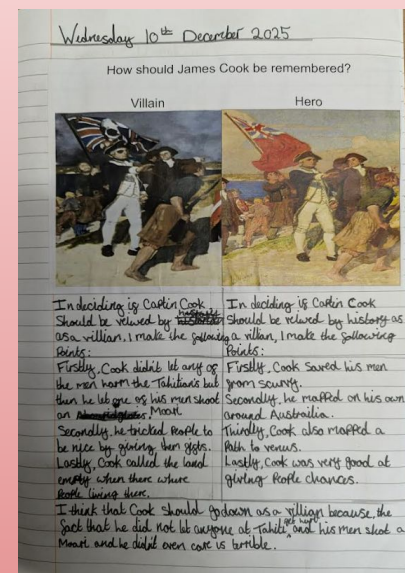 Wednesday 10th December 2025
How should James Cook be remembered?
Villain
Hero
In deciding if Captin Cook
Should be relwed by history
as a villian, I make the following
Points:
Firstly, Cook didn't let any of
the men harm the Tahitians but
then he let one of his men shoot
an Moari
Secondly, he tricked People to
be nice by giving them gifts.
Lastly, Cook called the land
empty when there where
People living there.
In deciding if Captin Cook
Should be relwed by history as
a villian, I make the following
Points:
Firstly, Cook Saved his men
from scurvy.
Secondly, he mapped on his own
around Austrailia.
Thirdly, Cook also mapped a
Path to venus.
Lastly, Cook was very good at
giving People chances.
I think that Cook Should go down as a villian because, the
fact that he did not let anyone at Tahiti get hurt and his men shot a
Moari and he didn't even care is terrible.